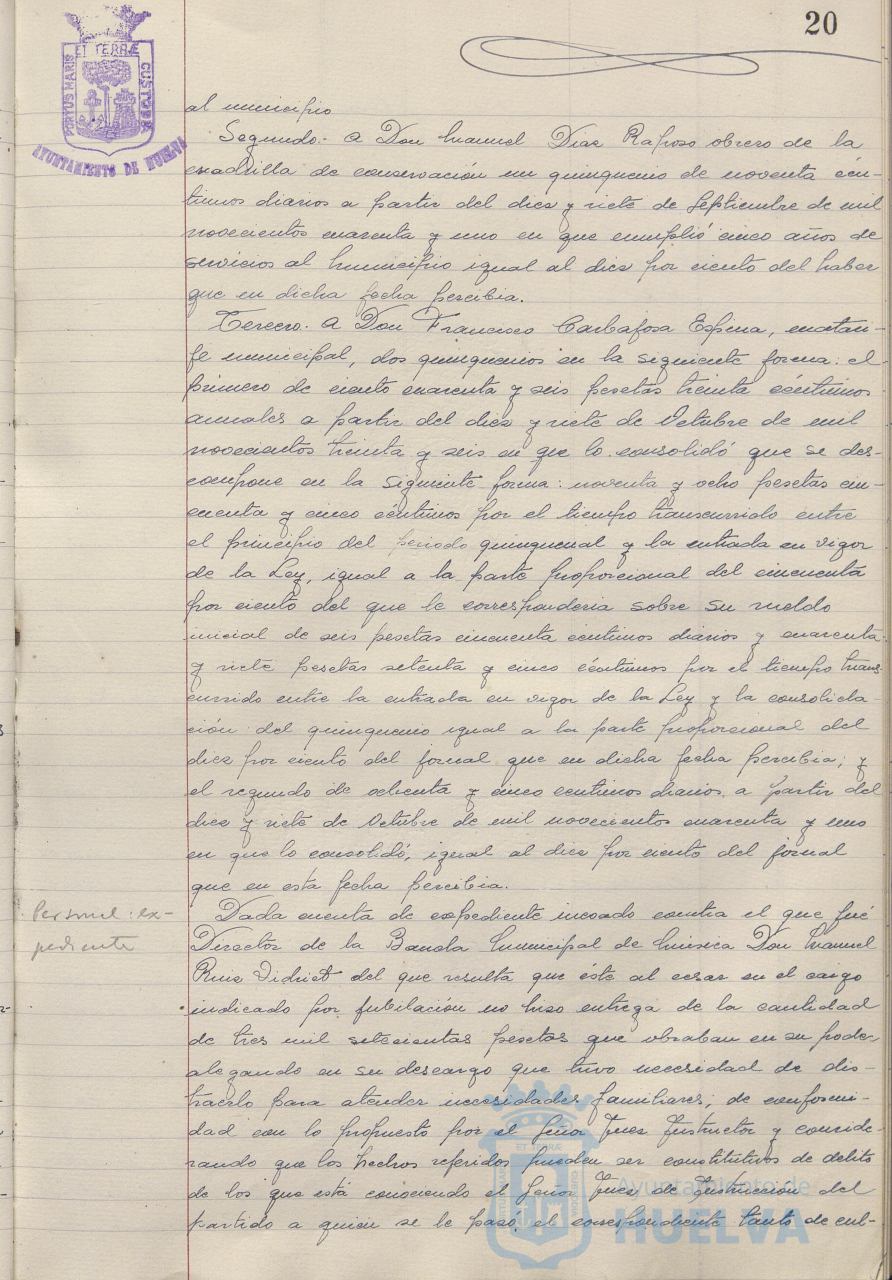 20
PORTUS MARIS ET TERRÆ CUSTODIA
AYUNTAMIENTO DE HUELVA
al municipio
Segundo.- A Don Manuel Dias Raposo obrero de la
cuadrilla de conservación un quinquenio de noventa cén-
timos diarios a partir del diez y siete de Septiembre de mil
novecientos cuarenta y uno en que cumplió cinco años de
servicios al Municipio igual al diez por ciento del haber
que en dicha fecha percibia.
Tercero. A Don Francisco Carbajosa Espina, matari-
fe municipal, dos quinquenios en la siguiente forma: el
primero de ciento cuarenta y seis pesetas treinta céntimos
anuales a partir del diez y siete de Octubre de mil
novecientos treinta y seis en que lo consolidó que se des-
compone en la siguiente forma: noventa y ocho pesetas cin-
cuenta y cinco céntimos por el tiempo transcurrido entre
el principio del periodo quinquenal y la entrada en vigor
de la Ley, igual a la parte proporcional del cincuenta
por ciento del que le corresponderia sobre su sueldo
inicial de seis pesetas cincuenta centimos diarios y cuarenta
y siete pesetas setenta y cinco céntimos por el tiempo trans
currido entre la entrada en vigor de la Ley y la consolida-
ción del quinquenio igual a la parte proporcional del
diez por ciento del jornal que en dicha fecha percibia; y
el segundo de ochenta y cinco centimos diarios a partir del
diez y siete de Octubre de mil novecientos cuarenta y uno
en que lo consolidó, igual al diez por ciento del jornal
que en esta fecha percibia.
Personal: ex-
pediente
Dada cuenta de expediente incoado contra el que fué
Director de la Banda Municipal de Música Don Manuel
Ruiz Vidriet del que resulta que éste al cesar en el cargo
indicado por jubilación no hizo entrega de la cantidad
de tres mil setecientas pesetas que obraban en su poder
alegando en su descargo que tuvo necesidad de dis-
traerlo para atender necesidades familiares; de conformi-
dad con lo propuesto por el Señor Juez Instructor y conside-
rando que los hechos referidos pueden ser constitutivos de delito
de los que está conociendo el Señor Juez de Instruccion del
partido a quien se le pasó el correspondiente tanto de cul-
Ayuntamiento de
HUELVA